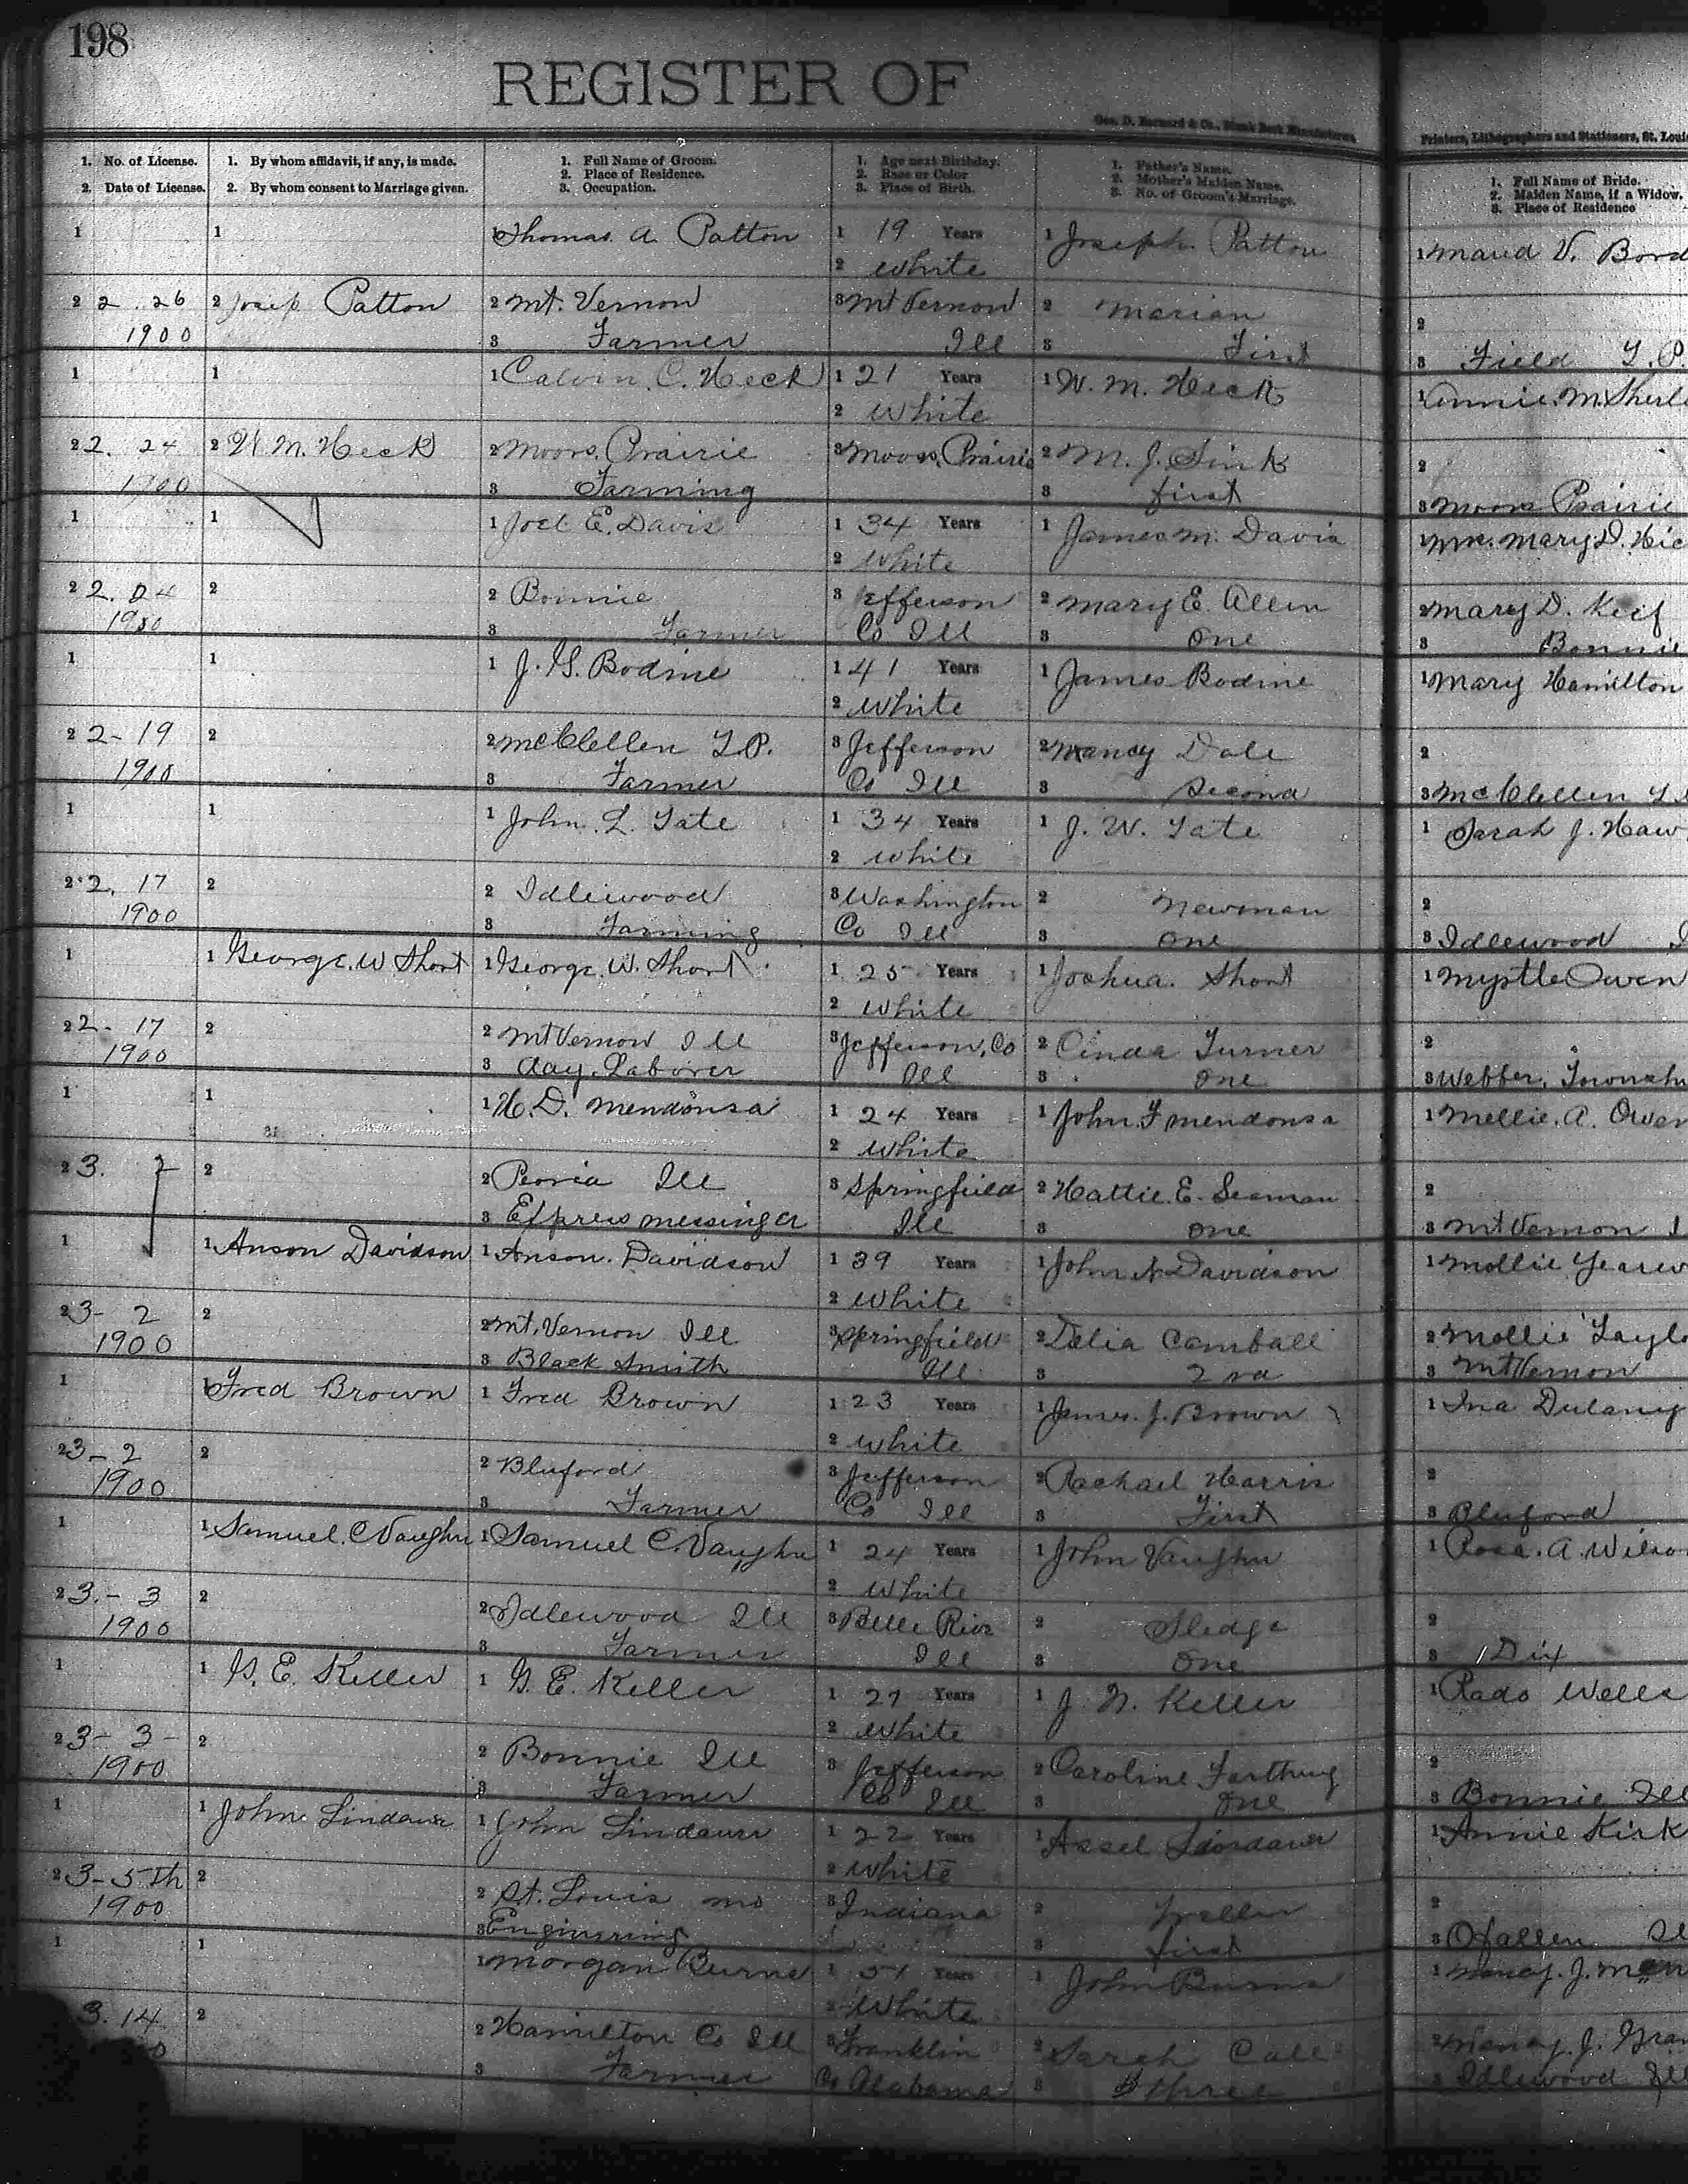 198
REGISTER OF
Geo. D. Barnard & Co., Blank Book Manufacturers,
Printers, Lithographers and Stationers, St. Loui
1. No. of License.
2. Date of License.
1. By whom affidavit, if any, is made.
2. By whom consent to Marriage given.
1. Full Name of Groom.
2. Place of Residence.
3. Occupation.
1. Age next Birthday.
2. Race or Color
3. Place of Birth.
1. Father's Name.
2. Mother's Maiden Name.
3. No. of Groom's Marriage.
1. Full Name of Bride.
2. Maiden Name, if a Widow.
3. Place of Residence
1 1 1 Thomas A. Patton 1 19 Years 1 Joseph Patton 1 Maud V. Bord
2 White
2 2. 26 2 Josep Patton 2 Mt. Vernon 3 Mt Vernon 2 Marian 2
1900 3 Farmer Ill 3 First 3 Field T.P.
1 1 1 Calvin C. Heck 1 21 Years 1 W. M. Heck 1 Annie M. Sherl
2 White
2 2. 24 2 W. M. Heck 2 Moors Prairie 3 Moors Prairie 2 M. J. Sink 2
1900 3 Farming 3 first 3 Moors Prairie
1 1 1 Joel E. Davis 1 34 Years 1 James M. Davis 1 Mrs. Mary D. Hic
2 White
2 2. 04 2 2 Bonnie 3 Jefferson 2 Mary E. Allen 2 Mary D. Keif
1900 3 Farmer Co Ill 3 One 3 Bonnie
1 1 1 J. G. Bodine 1 41 Years 1 James Bodine 1 Mary Hamilton
2 White
2 2-19 2 2 McClellen T.P. 3 Jefferson 2 Nancy Dale 2
1900 3 Farmer Co Ill 3 Second 3 McClellen T
1 1 1 John L. Tate 1 34 Years 1 J. W. Tate 1 Sarah J. Haw
2 White
2 2. 17 2 2 Idliwood 3 Washington 2 Newman 2
1900 3 Farming Co Ill 3 One 3 Idlewood I
1 1 George W Short 1 George W. Short 1 25 Years 1 Joshua Short 1 Myrtle Owen
2 White
2 2-17 2 2 Mt Vernon Ill 3 Jefferson, Co 2 Cinda Turner 2
1900 3 day Laborer Ill 3 One 3 Webber, Townsh
1 1 1 H. D. Mendonsa 1 24 Years 1 John F Mendonsa 1 Mellie A. Owen
2 White
2 3. 2 2 2 Peoria Ill 3 Springfield 2 Hattie E. Seaman 2
3 Express messinger Ill 3 One 3 Mt Vernon I
1 1 Anson Davidson 1 Anson Davidson 1 39 Years 1 John N Davidson 1 Mollie Yearw
2 White
2 3-2 2 2 Mt. Vernon Ill 3 Springfield 2 Delia Camball 2 Mollie Taylo
1900 3 Black Smith Ill 3 2nd 3 Mt Vernon
1 1 Fred Brown 1 Fred Brown 1 23 Years 1 James J. Brown 1 Ina Dulaney
2 White
2 3-2 2 2 Bluford 3 Jefferson 2 Rachael Harris 2
1900 3 Farmer Co Ill 3 First 3 Bluford
1 1 Samuel C Vaughn 1 Samuel C. Vaughn 1 24 Years 1 John Vaughn 1 Rosa A. Wilso
2 White
2 3.-3 2 2 Idlewood Ill 3 Belle Rive 2 Sledge 2
1900 3 Farmer Ill 3 One 3 Dix
1 1 G. E. Keller 1 G. E. Keller 1 27 Years 1 J. N. Keller 1 Rado Wells
2 White
2 3-3- 2 2 Bonnie Ill 3 Jefferson 2 Caroline Farthing 2
1900 3 Farmer Co Ill 3 One 3 Bonnie Ill
1 1 John Lindauer 1 John Lindauer 1 22 Years 1 Assel 1 Annie Kirk
2 White
2 3-5th 2 2 St. Louis Mo 3 Indiana 2 2
1900 3 Enginering 3 first 3 Ofallen Il
1 1 1 Morgan Burns 1 51 Years 1 John Burns 1 Nancy J.
2 White
3. 14 2 2 Hamilton Co Ill 3 Franklin 2 Sarah Call 2 Nancy J. Gra
0 3 Farmer Co Alabama 3 three 3 Idlewood Ill